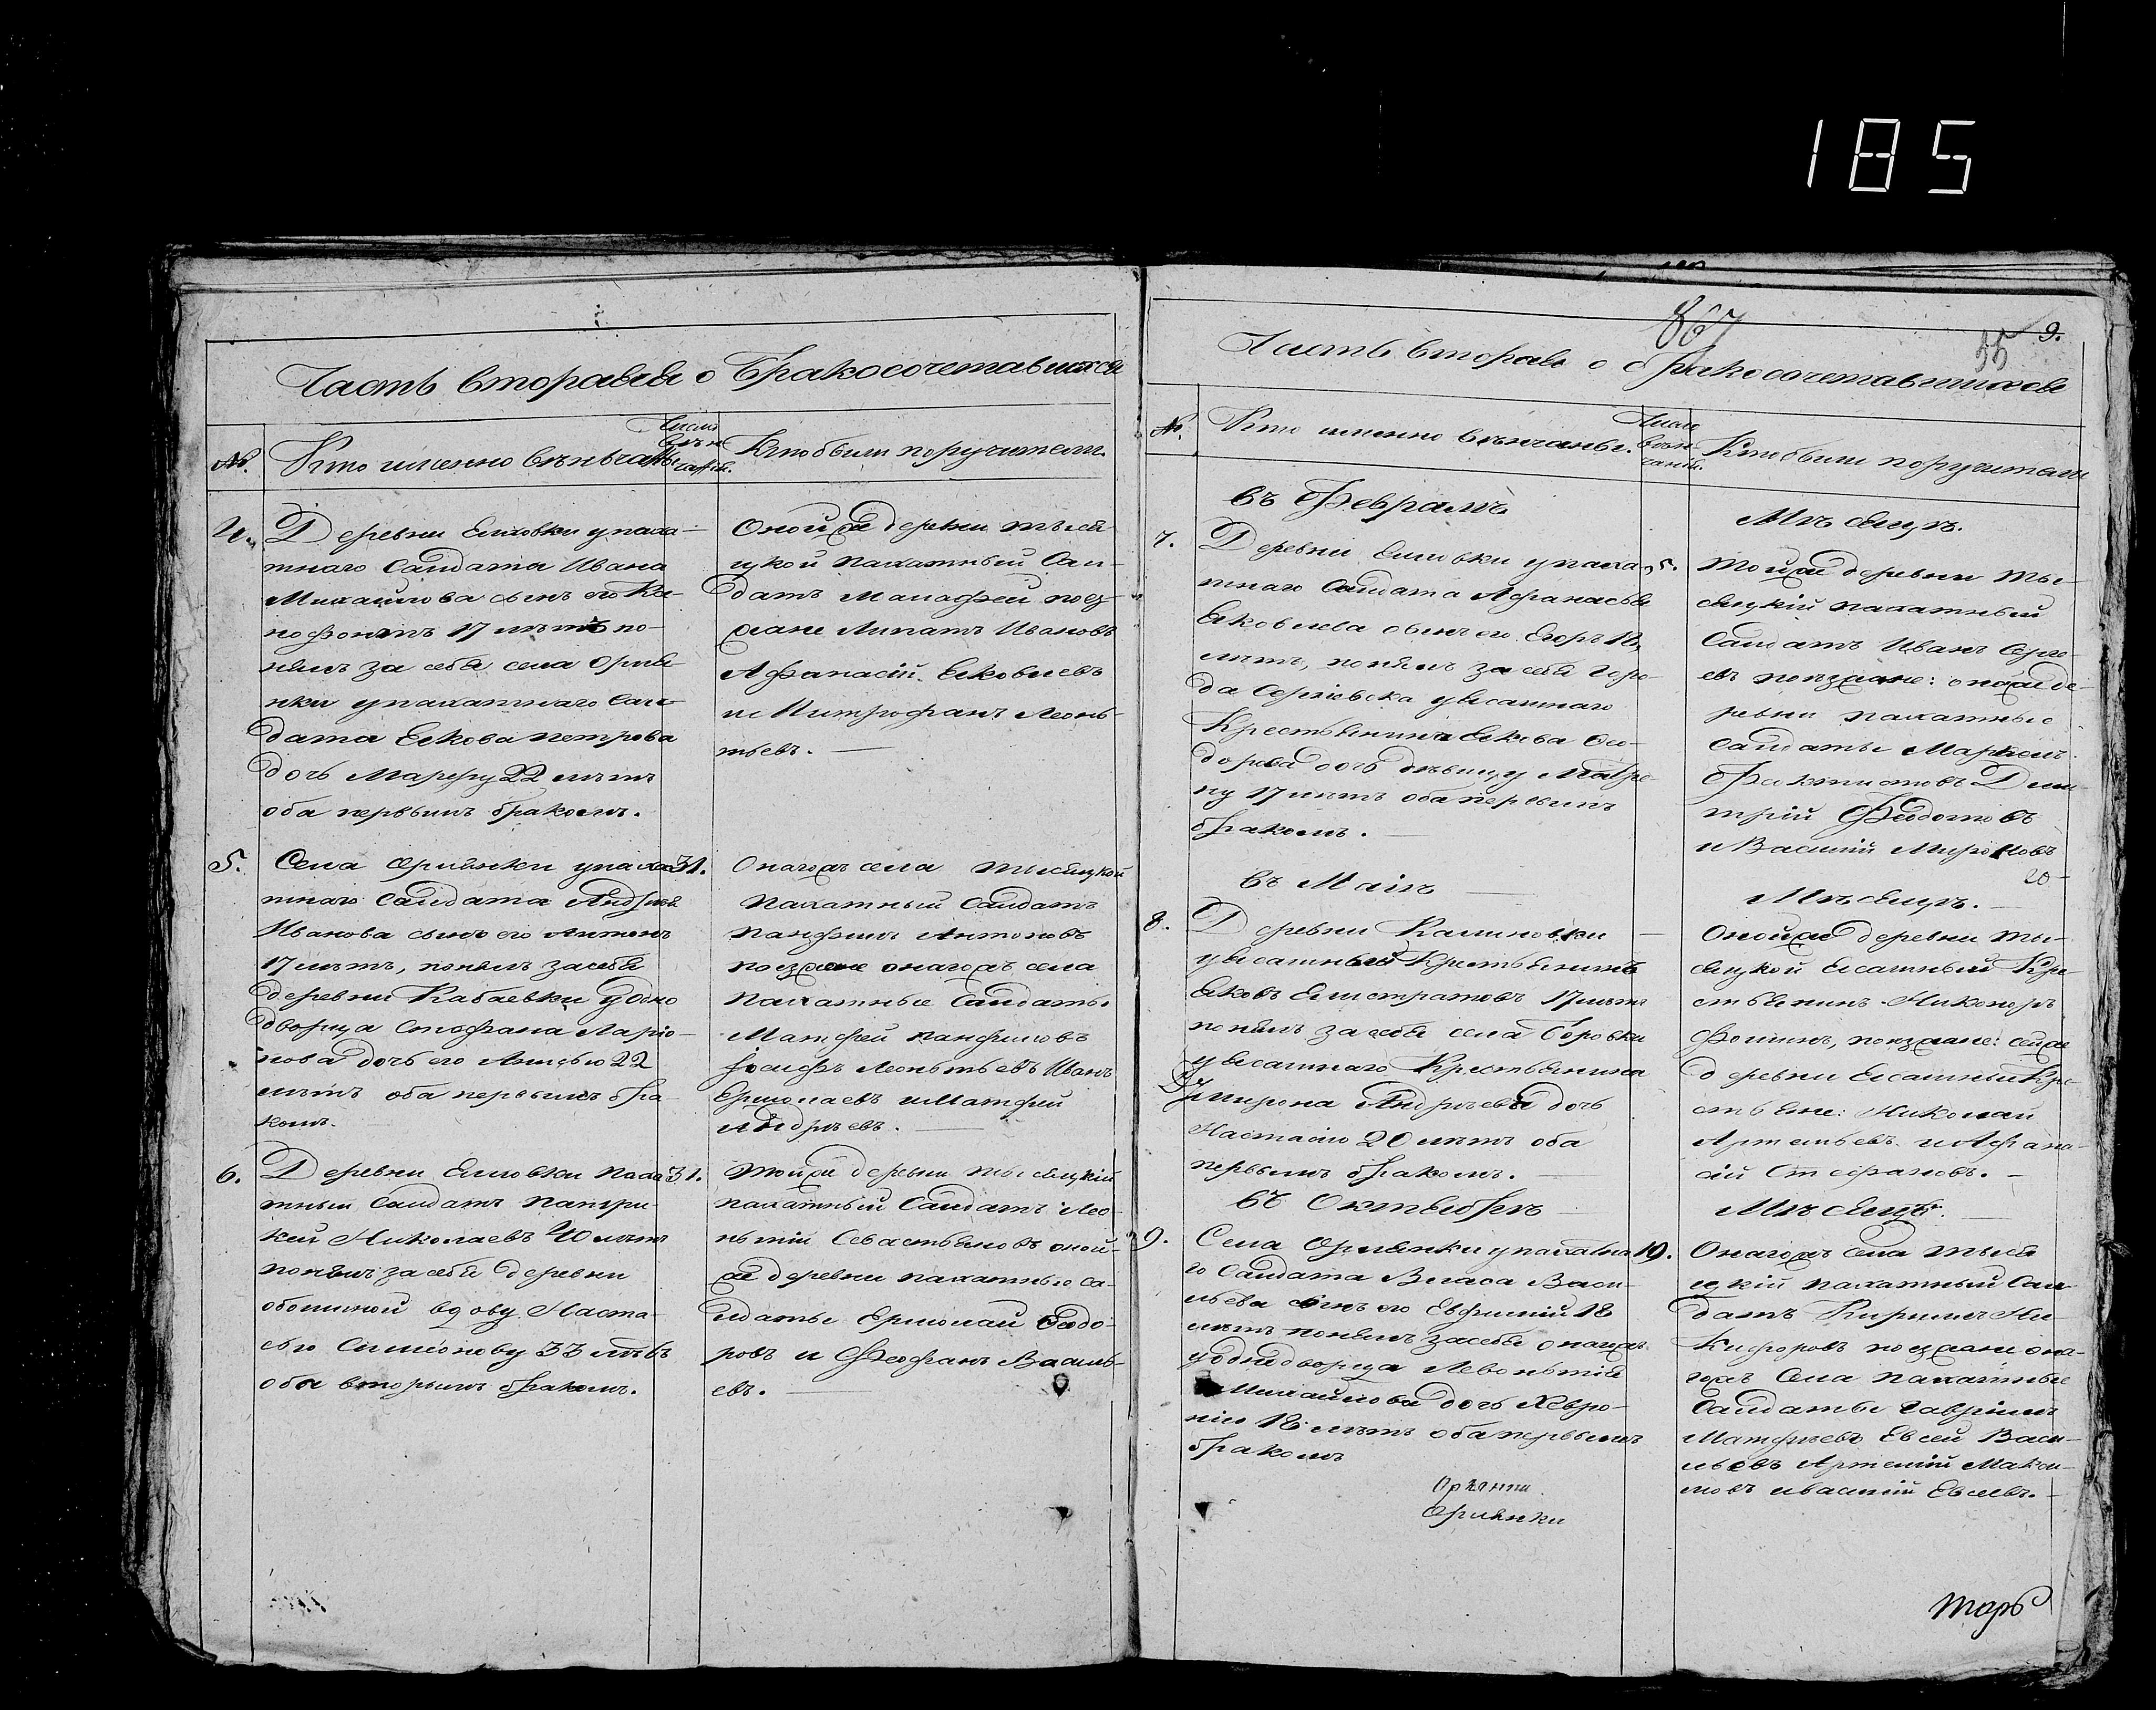 185
Часть вторая о Бракосочетавшихся
№.
Кто именно венчаны
Число венчанiя.
Кто были поручители.
4.
Деревни Елховки у паха-
тнаго Салдата Ивана
Михайлова сынъ его Ка-
нофонтъ 17 летъ по-
нялъ за себя села Орля-
нки у пахатнаго Сал-
дата Якова петрова
дочь Марфу 22 летъ
оба первымъ бракомъ.
Оной же деревни тыся
цкой пахатный Сал-
датъ поез
жане Липатъ Ивановъ
Афанасiй Яковлевъ
и Митрофанъ Леонь-
тьевъ.
5.
Села Орлянки у паха
тнаго Салдата Андрея
Иванова сынъ его Антонъ
17 летъ, понялъ за себя
деревни Кабаевки у одно
дворца Стефана Ларiо-
нова дочь его 22
летъ оба первымъ бра
комъ.
31.
Оногожъ села тысяцкой
пахатный Салдатъ
панфилъ Антоновъ
поезжане оногожъ села
пахатные Салдаты
Матфей панфиловъ
Iосифъ Леоньтьевъ Иванъ
Ермолаевъ и Матфей
Андреевъ.
6.
Деревни Елховки паха
тный Салдатъ патри-
кей Николаевъ 40 летъ
понялъ за себя деревни
вдову Наста-
сью Симiонову 33 летъ
оба вторымъ бракомъ.
31.
Тойже деревни тысяцкiй
пахатный Салдатъ Лео-
нтiй Севастьяновъ оной-
же деревни пахатные са-
лдаты Ермолай Федо-
ровъ и Феофанъ Василь-
евъ.
867
55
9.
Часть вторая о бракосочетавшихся
№.
Кто именно венчаны.
Число венчанiя.
Кто были поручители
въ Феврале
Месяце.
7.
Деревни Елховки у паха
тнаго Салдата Афанасья
Яковлева сынъ его Егоръ 18
летъ, понялъ за себя горо-
да Сергiевска у ясашнаго
Крестьянина Якова Фео-
дорова дочь девицу Матре-
ну 17 летъ оба первымъ
бракомъ.
5.
Тойже деревни ты-
сяцкiй пахатный
Салдатъ Иванъ Серге-
евъ поезжане: онойже де-
ревни пахатные
Салдаты
Феактистовъ Дми-
трiй Федотовъ
и Василiй Мироновъ
20
въ Маiе
Месяце.
8.
Деревни Калиновки
у ясашный Крестьянинъ
Яковъ Елистратовъ 17 летъ
понялъ за себя села Боровки
у ясашнаго Крестьянина
Мирона Андреева дочь
Настасiю 20 летъ оба
первымъ бракомъ.
Онойже деревни ты-
сяцкой Ясашный Кре-
стьянинъ Никоноръ
Фоминъ, поезжане: сейже
деревни Ясашныи Кре-
стьяне: Николай
Артемьевъ и Афана-
сiй Стефановъ.
въ Октябре
Месяце.
9.
Села Орлянки у пахатна
го Салдата Власа Васи-
льева сынъ его Евфимiй 18
летъ понялъ за себя оногожъ
у однодворца Левоньтiя
Михайлова дочь Хевро-
нiю 18 летъ оба первымъ
бракомъ
19.
Оногожъ села тыся
цкiй пахатный Сал-
датъ Кирилъ Ни-
кифоровъ поезжане оно-
гожъ Села пахатные
Салдаты Гаврiилъ
Матфеевъ Евсей Васи-
льевъ Артемiй Макси-
мовъ и Василiй Евсеевъ.
Орлянки
торъ